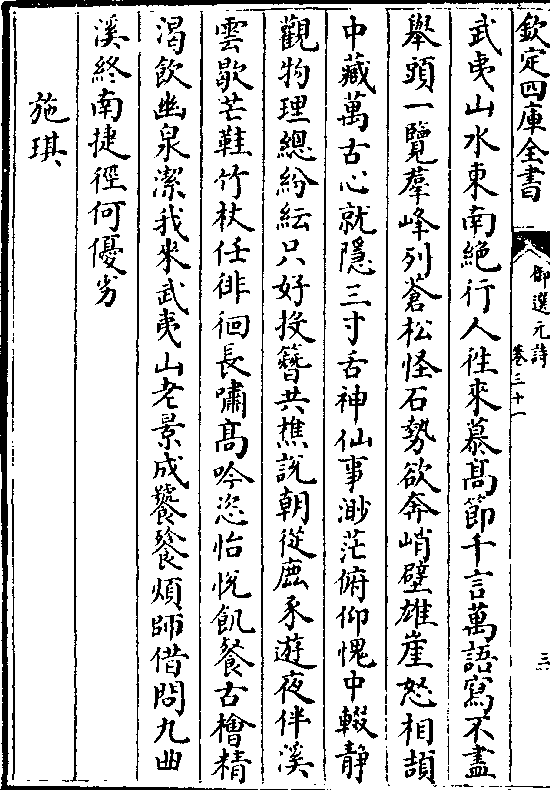 欽定四庫全書
御選元詩
卷三十一
三
武夷山水東南絶行人徃來慕髙節千言萬語寫不盡
舉頭一覽羣峰列蒼松怪石勢欲奔峭壁雄崖怒相頡
中藏萬古心就隱三寸舌神仙事渺茫俯仰愧中輟静
觀物理總紛紜只好投簪共樵說朝從鹿豕遊夜伴溪
雲歇芒鞋竹杖任徘徊長嘯髙吟恣怡悦飢餐古檜精
渴飲幽泉潔我來武夷山老景成饕餮煩師借問九曲
溪終南捷徑何優劣
施琪